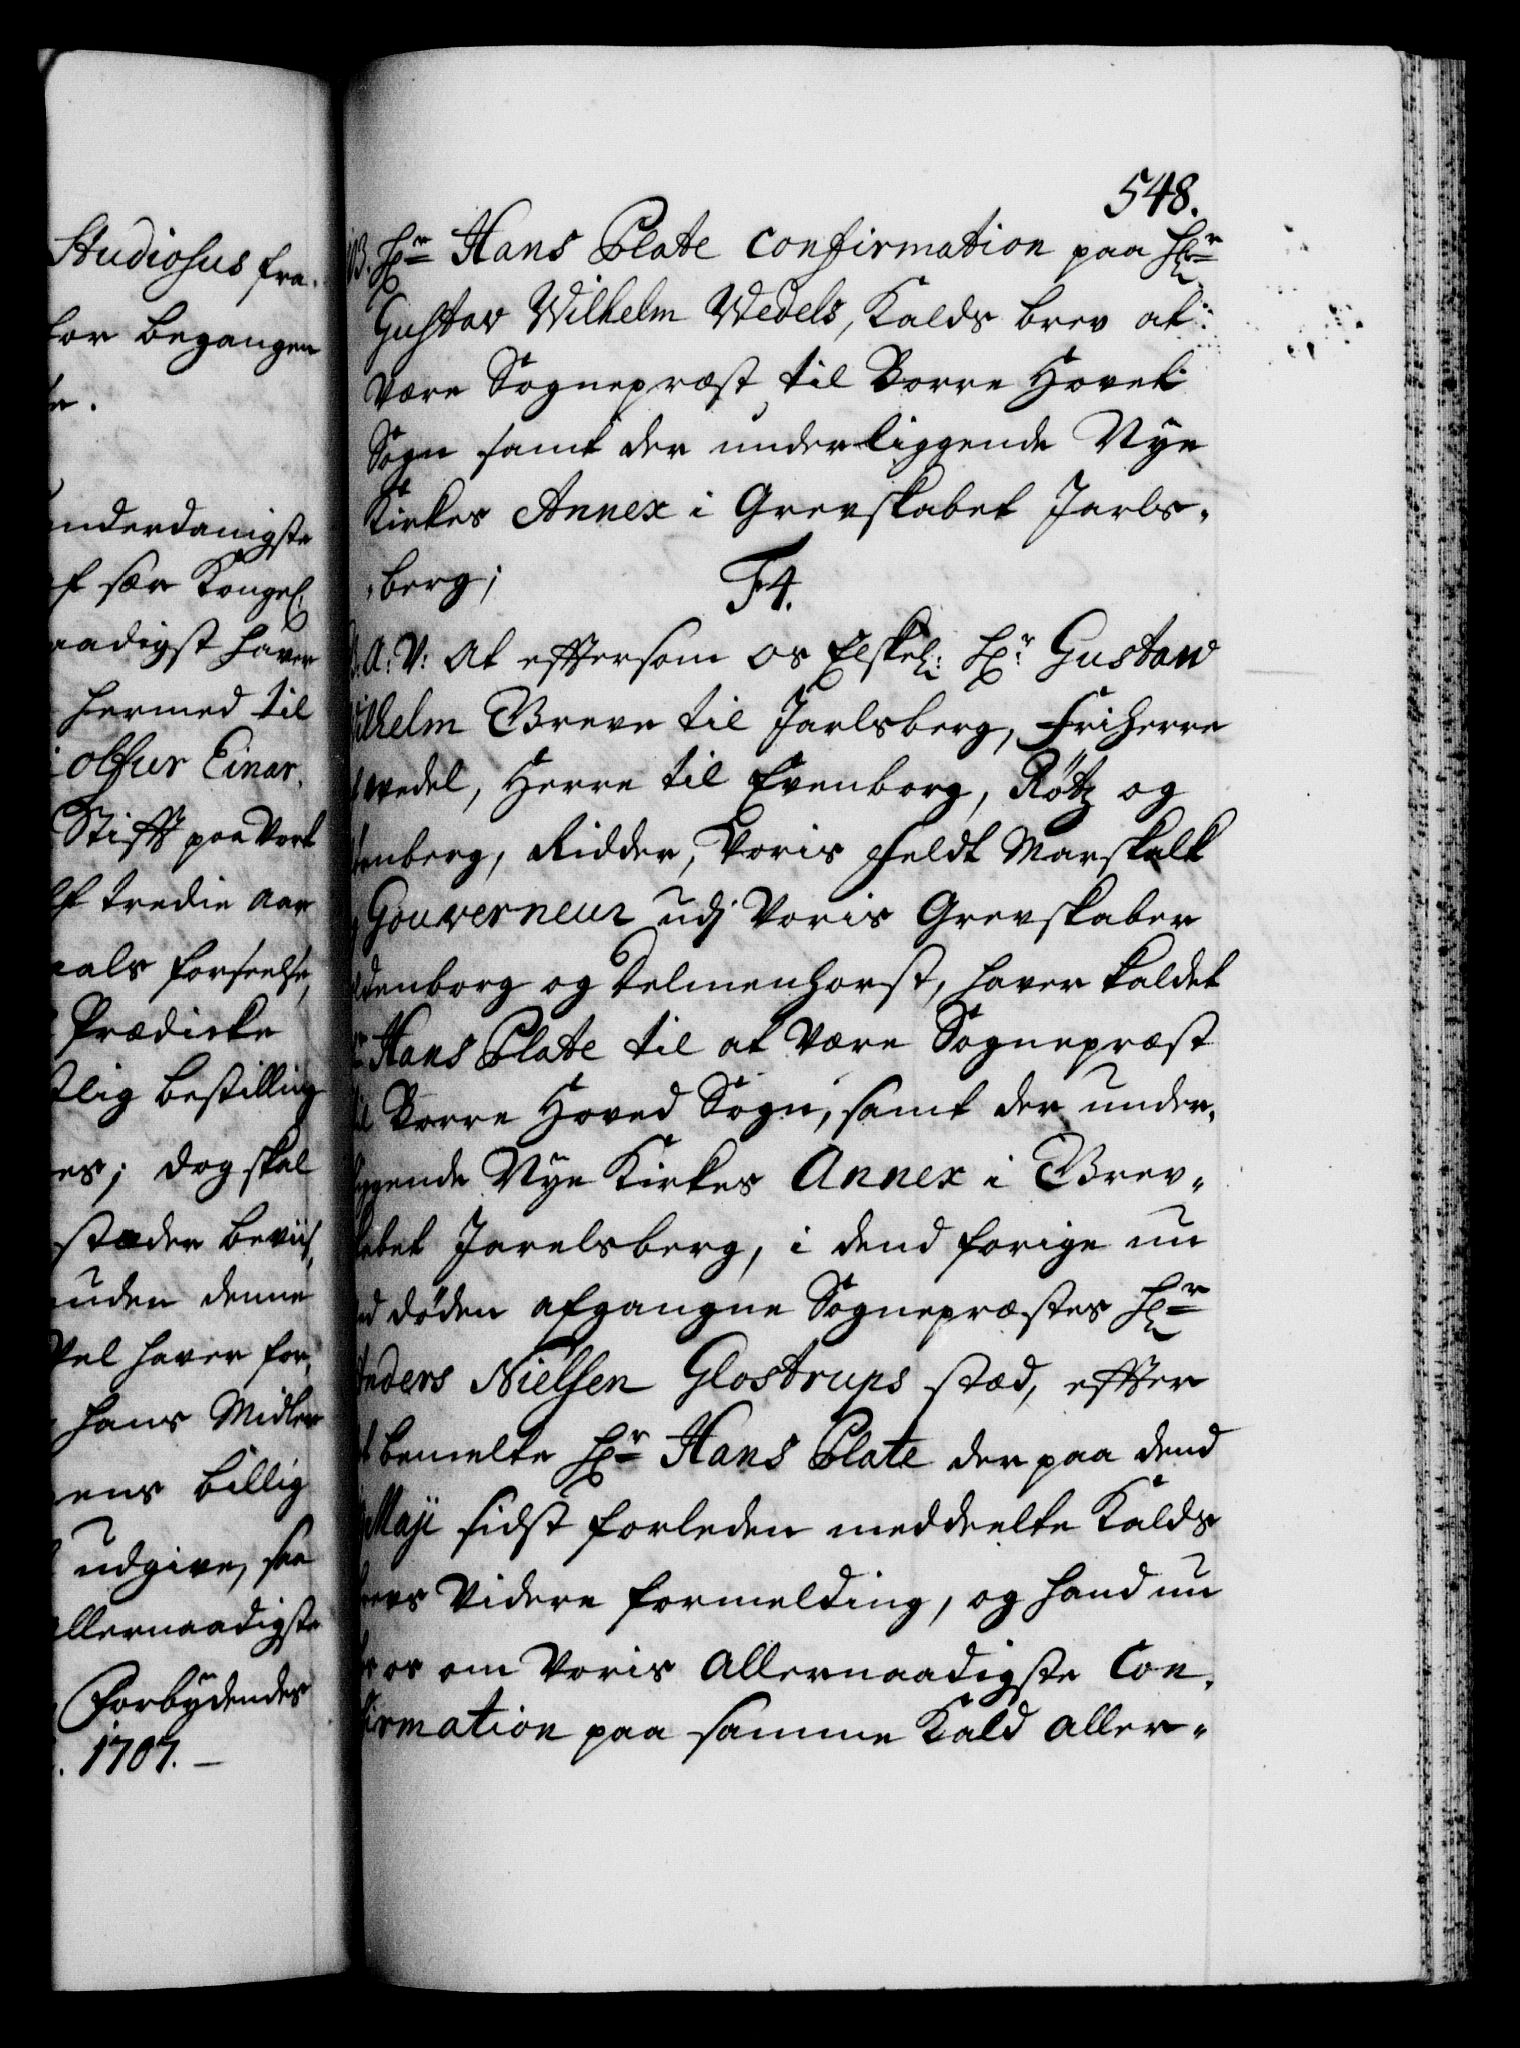 548.
Studiosus fra
for begangen
underdanigste
sær Kongel.
naadigst haver
hermed til
olfur Einar,
Stifft paa Vort
tredie Aar
forseelse,
Prædicke
bestilling
es; dog skal
stæder beviis,
uden denne
Vel haver for,
hans Midler
ens billig
udgive, saa
allernaadigste
Forbydendes
1707.
Hr Hans Plate Confirmation paa Hr
Gustav Wilhelm Wedels, Kalds brev at
Være Sognepræst til Borre Hovet
Sogn samt der underliggende Nye
Kirkes Annex i Grevskabet Jarls,
,berg;
F4.
A: V: At efftersom os Elskel: Hr: Gustaw
Wilhelm Greve til Jarlsberg, Friherre
wedel, Herre til Evenborg, Røtz og
enberg, Ridder, Voris Feldt Marskalk
Gouverneur udj Voris Grevskaber
Oldenborg og Delmenhorst, haver kaldet
Hr Hans Plate til at Være Sognepræst
til Borre Hoved Sogn, samt der under,
liggende Nye Kirkes Annex i Grev,
skabet Jarelsberg, i dend forige nu
ved døden afgangne Sognepræstes Hr
Anders Nielsen Glostrups stæd, effter
bemelte Hr Hans Plate der paa dend
Maji sidst forleden meddeelte Kalds
brevs Videre formelding, og hand nu
os om Voris Allernaadigste Con,
firmation paa samme Kald aller,